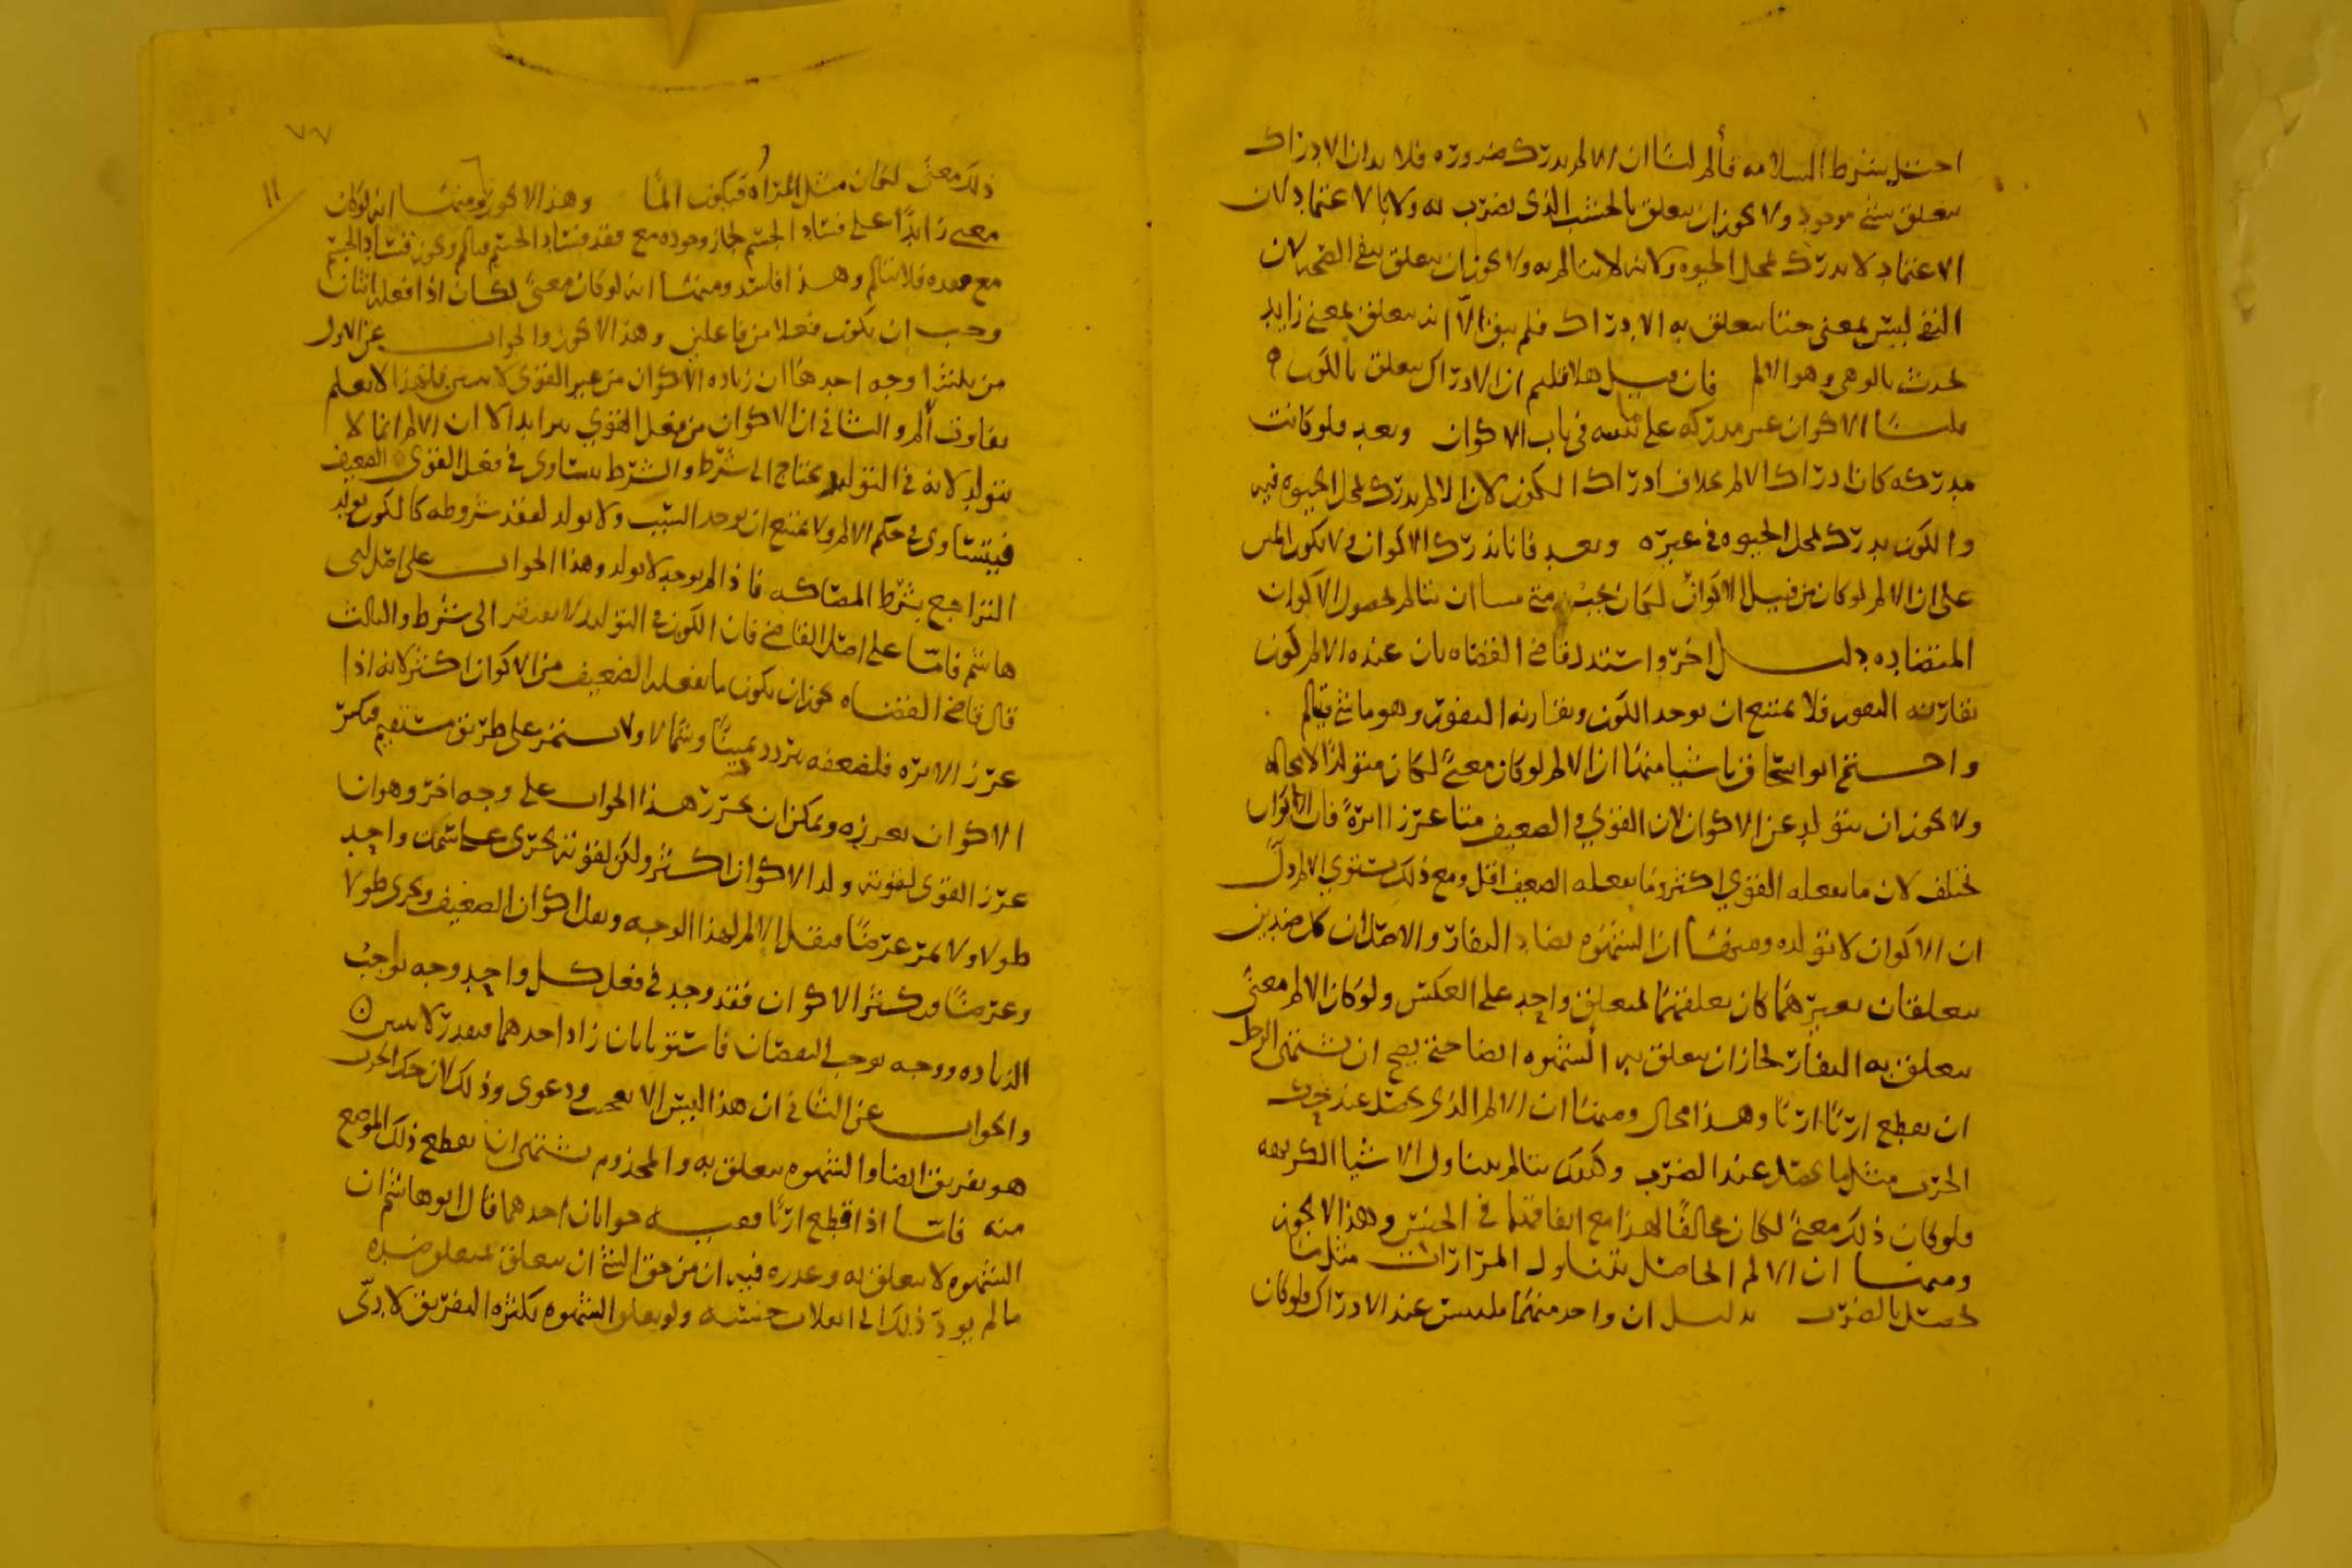 احتل بشرط السلامه فألم لنا ان الالم يدرك ضروره فلا بد ان الادراك
يتعلق بشئ موجود ولا يجوز ان يتعلق بالخشب الذى يضرب به ولا بالاعتماد لان
الاعتماد لا يدرك لمحل الحيوه ولانه لا يتالم به ولا يجوز ان يتعلق بنفى الصحه لان
النفى ليس بمعنى حتى يتعلق به الادراك فلم يبق الا انه يتعلق بمعنى زايد
يحدث بالوهى وهو الالم فان قيل هلا قلتم ان الادراك يتعلق بالكون
قلنا الاكوان غير مدركه على ما نبينه فى باب الاكوان وبعد فلو كانت
مدركه كان ادراك الالم بخلاف ادراك الكون لان الالم يدرك لمحل الحيوه فيه
والكون يدرك لمحل الحيوه فى غيره وبعد فانا ندرك الاكوان ولا يكون الم
على ان الالم لو كان من قبيل الاكوان لكان يجب متى ان نتالم لحصول الاكوان
المتضاده دليل اخر واستدل قاضى القضاه بان عنده الالم كون
يقارنه النفور فلا يمتنع ان يوجد الكون ويقارنه النفور وهو ما شى فيالم
واحتج ابو اسحاق باشيا منها ان الالم لو كان معنى لكان متولدا لا محاله
ولا يجوز ان يتولد عن الاكوان لان القوي والضعيف متى غرز ابرة فان الاكوان
تختلف لان ما يفعله القوي اكثر وما يفعله الضعيف اقل ومع ذلك يستوي الالم دل
ان الاكوان لا تولده ومنها ان الشهوه تضاد النفار والاصل ان كل ضدين
يتعلقان بغيرهما كان تعلقهما لمتعلق واحد على العكس ولو كان الالم معنى
يتعلق به النفار لجاز ان يتعلق به الشهوه ايضا حتى يصح ان يشتهى الرجل
ان يقطع اربا اربا وهذا محال ومنها ان الالم الذى يحصل عند حك
الجرب مثل ما يحصل عند الضرب وكذلك نتالم بتناول الاشيا الكريهه
فلو كان ذلك معنى لكان مخالفا لهذا مع اتفاقهما فى الجنس وهذا لا يجوز
ومنها ان الالم الحاصل بتناول المرارات مثل ما
يحصل بالضرب بدليل ان واحد منهما يلتبس عند الادراك فلو كان
ذلك معنى لكان مثل المراره فيكون الما وهذا لا يجوز ومنها انه لو كان
معنى زايدا على فساد الجسم لجاز وجوده مع فقد فساد الجسم فيالم ويجوز فساد الجسم
مع عدمه فلا يتالم وهذا فاسد ومنها انه لو كان معنى لكان اذا فعله اثنان
وجب ان يكون فعلا من فاعلين وهذا لا يجوز والجواب عن الاول
من ثلثه اوجه احدها ان زياده الاكوان من غير القوى لا يتبين فلهذا لا يعلم
تفاوت ألم والثانى ان الاكوان من فعل القوي يتزايد الا ان الالم انما لا
يتولد لانه فى التولد يحتاج الى شرط والشرط يتساوى فى فعل القوى الضعيف
فيتساوى فى حكم الالم ولا يمتنع ان يوجد السبب ولا يولد لفقد شروطه كالكون يولد
التراجع بشرط المصاكه فاذا لم يوجد لا يولد وهذا الجواب على اصل ابى
هاشم فاما على اصل القاضى فان الكون فى التوليد لا يفتقر الى شرط والثالث
قال قاضى القضاه يجوز ان يكون ما يفعله الضعيف من الاكوان اكثر لانه اذا
غرز الابره فلضعفه يتردد يمينا وشمالا ولا يستمر على طريق مستقيم فيكثر
الاكوان بغرزه ويمكن ان يحرر هذا الجواب على وجه اخر وهو ان
غرز القوى لقوته ولد الاكوان اكثر ولكن لقوته يجرى على سمت واحد
طولا ولا يمر عرضا فيقل الالم لهذا الوجه ويقل اكوان الضعيف ويجرى طولا
وعرضا فيكثر الاكوان فقد وجد فى فعل كل واحد وجه يوجب
الزياده ووجه يوجب النقصان فاستويا بان زاد احدهما فبقدر لا يتبين
والجواب عن الثانى ان هذا ليس الا تعجب ودعوى وذلك لان حك الجرب
هو تفريق ايضا والشهوه يتعلق به والمجذوم يشتهى ان يقطع ذلك الموضع
منه فاما اذا قطع اربا ففيه جوابان احدهما قال ابو هاشم ان
الشهوه لا يتعلق به وعدره فيه ان من حق الشئ ان يتعلق بمتعلق ضده
ما لم يود ذلك الى انقلاب جنسه ولو تعلق الشهوه بكثره التفريق لادى
٧٧
١١